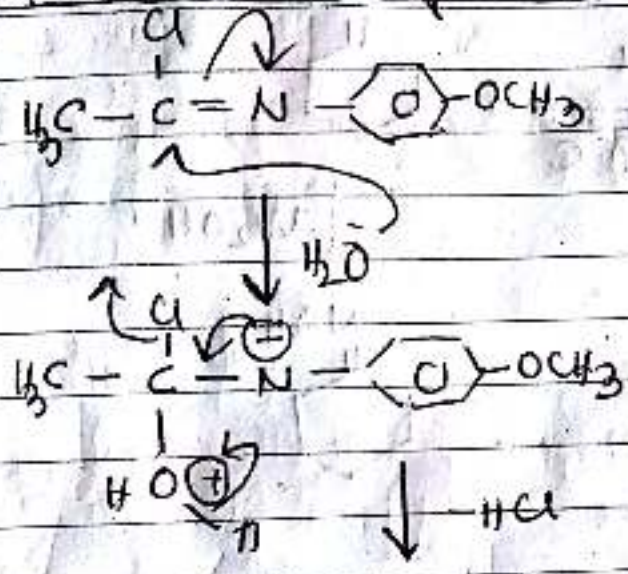 Cl
H3C - C = N - O - OCH3
H2O
Cl
H3C - C - N - O - OCH3
H O +
H
-HCl